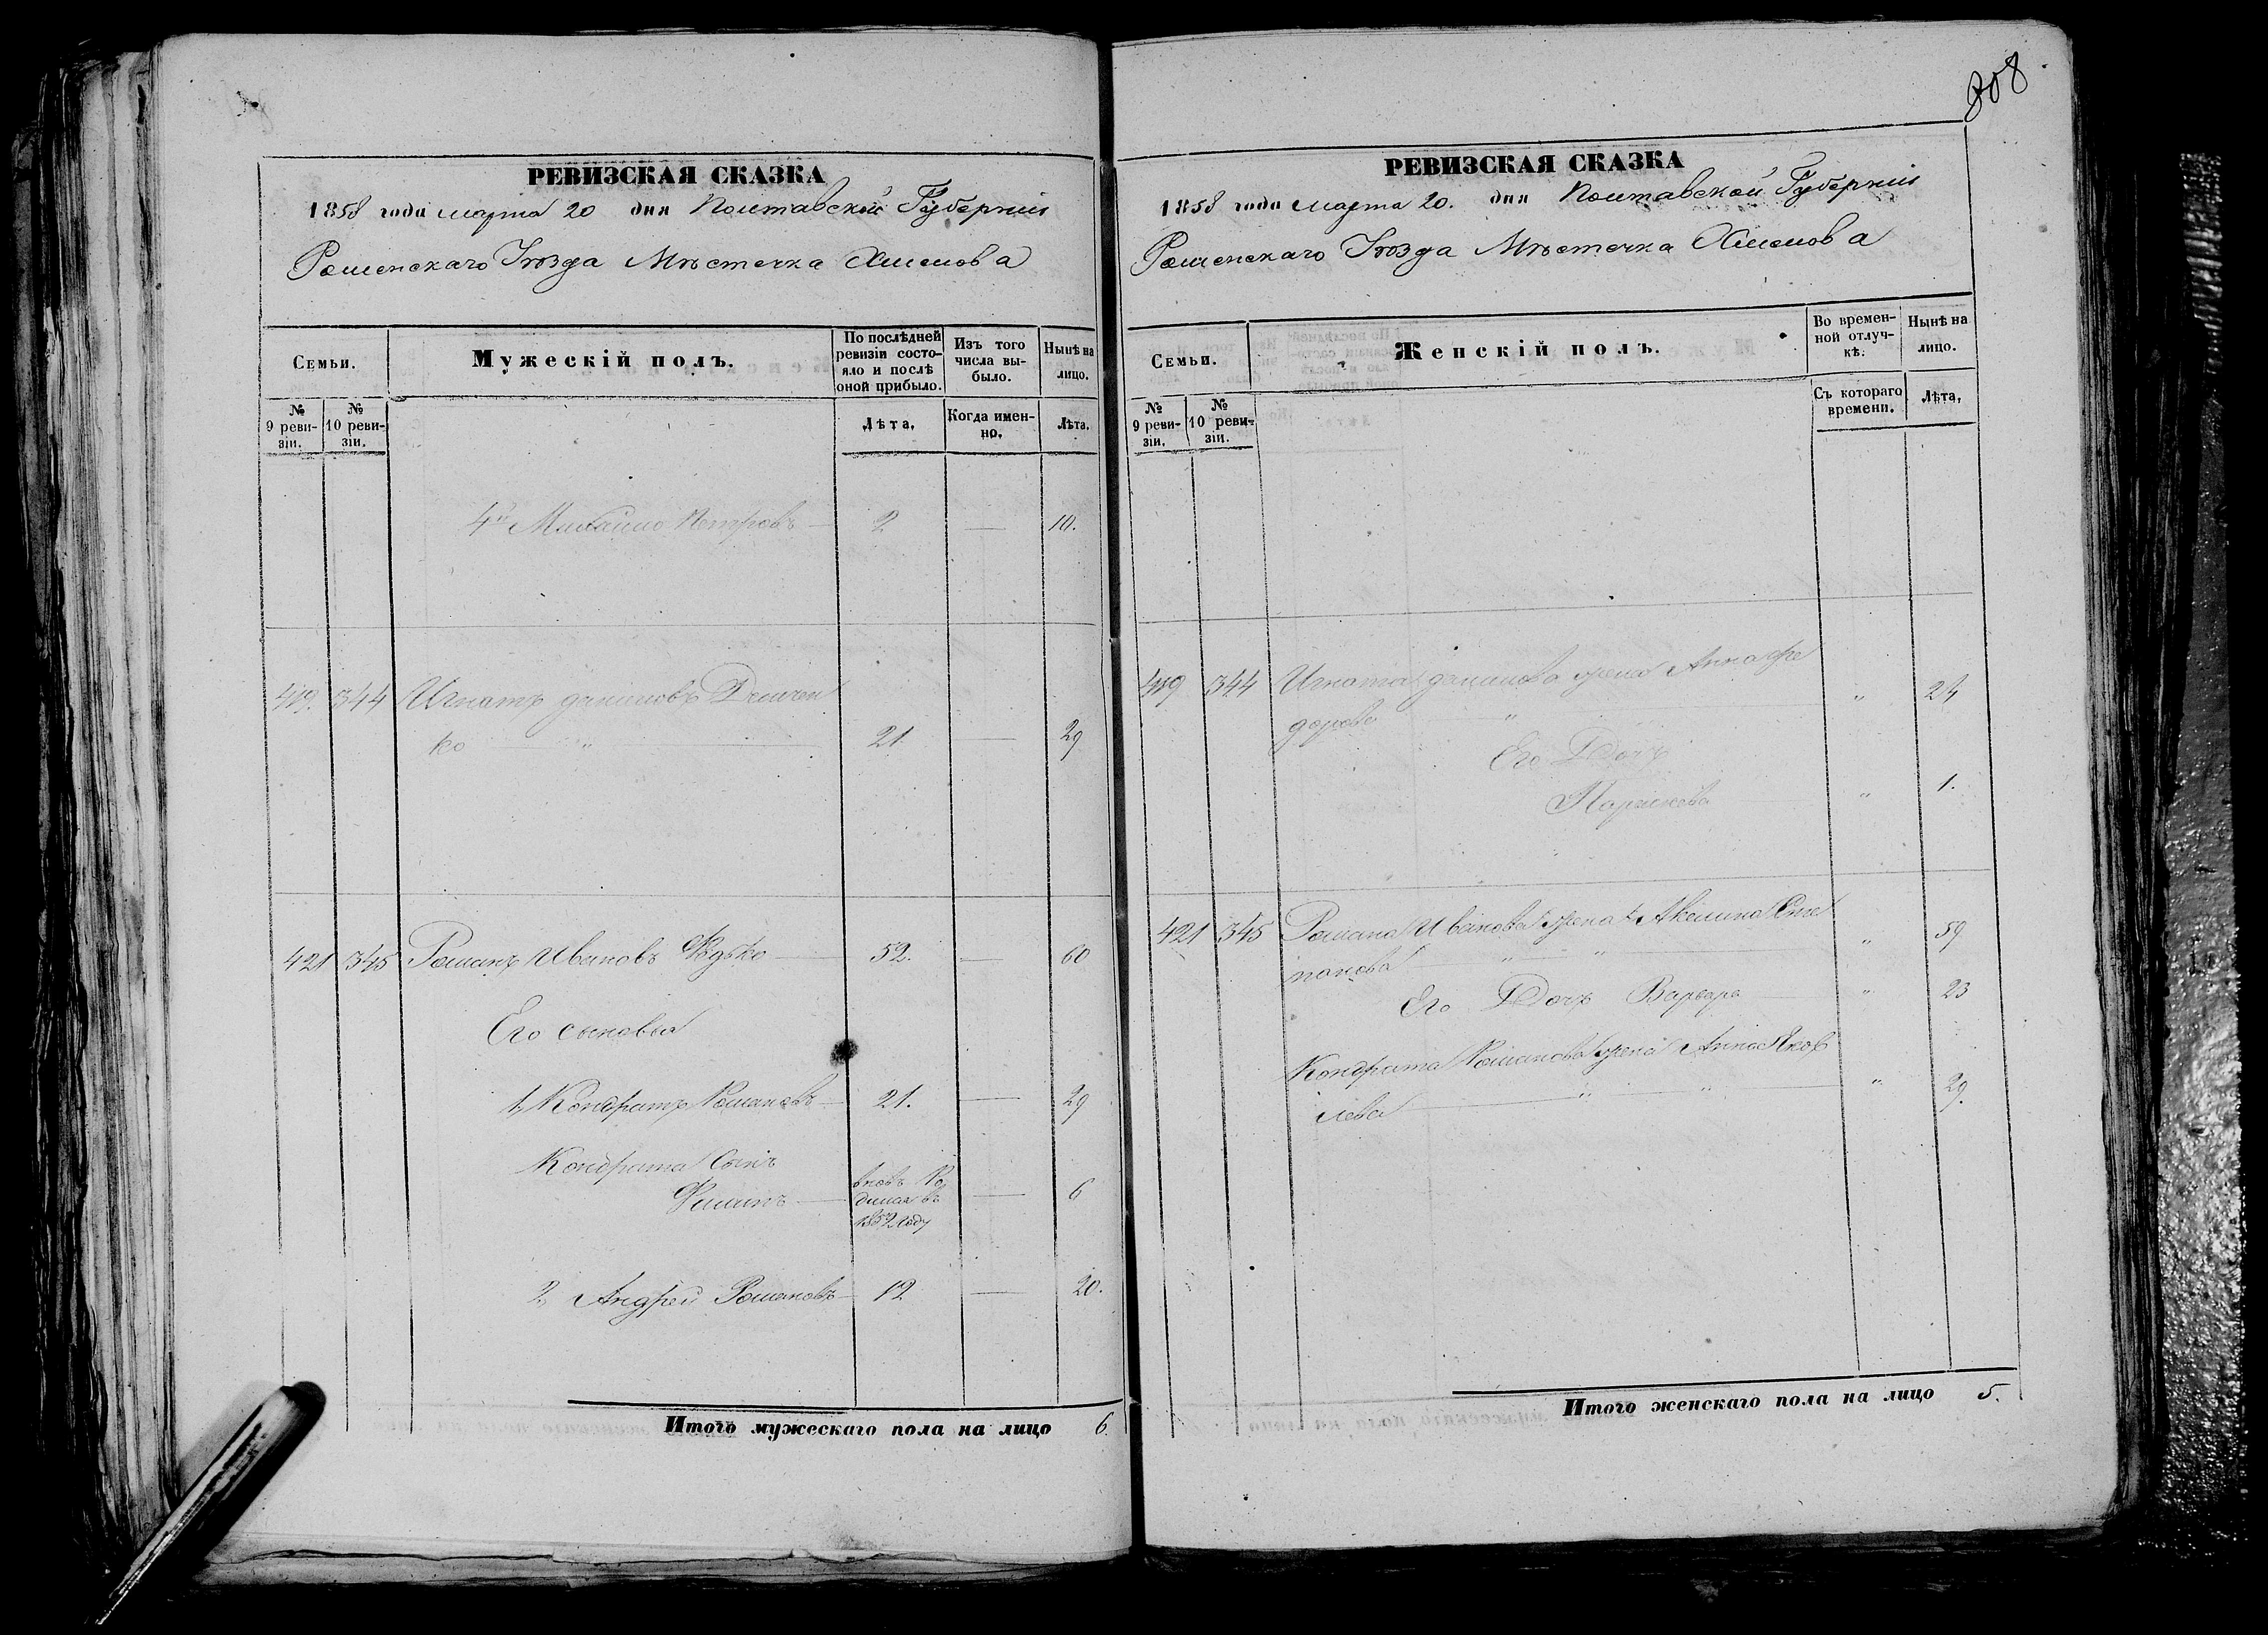 РЕВИЗСКАЯ СКАЗКА
1858 года марта 20 дня Полтавской Губерніи
Роменскаго Уѣзда Мѣстечка Хмелова
Семьи.
Мужескій полъ.
По послѣдней ревизіи состояло и послѣ оной прибыло.
Изъ того числа выбыло.
Нынѣ на лицо.
№ 9 ревизіи.
№ 10 ревизіи.
Лѣта.
Когда именно.
Лѣта.
4й Михайло Петровъ 2 — 10.
419. 344 Игнатъ Даниловъ
ко 21 — 29
421 345 Романъ Ивановъ 52. — 60
Его сыновья
1, Кондратъ Романовъ 21. — 29
Кондрата Сынъ
вновь Ро
дился въ
1852 году
— 6
2, Андрей Романовъ 12 — 20.
Итого мужескаго пола на лицо 6.
808
РЕВИЗСКАЯ СКАЗКА
1858 года марта 20. дня Полтавской Губерніи
Роменскаго Уѣзда Мѣстечка Хмелова
Семьи.
Женскій полъ.
Во временной отлучкѣ.
Нынѣ на лицо.
№ 9 ревизіи.
№ 10 ревизіи.
Съ котораго времени.
Лѣта.
419 344 Игната Данилова жена Анна Фе
дорова " 24
Его Дочь
" 1.
421 345 Романа Иванова жена Акилина Сте
панова " 59
Его Дочь Варвара " 23
Кондрата Романова жена Анна Яков
лева " 29.
Итого женскаго пола на лицо 5.